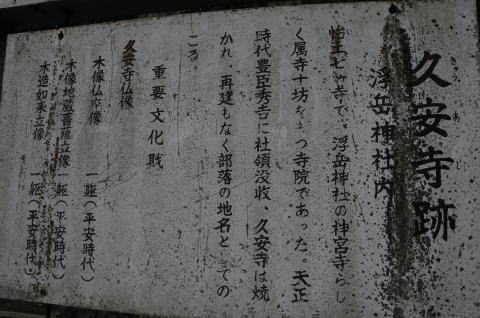 久安寺跡
きゅう あ じ
浮岳神社内
怡土七ヶ寺で、浮岳神社の神宮寺らし
く属寺十坊をもつ寺院であった。天正
時代豊臣秀吉に社領没収、久安寺は焼
かれ、再建もなく部落の地名としての
ころ。
重要文化財
久安寺仏像
木像仏坐像 一軀(平安時代)
木像地蔵菩薩立像 一軀(平安時代)
木造如来立像 一軀(平安時代)